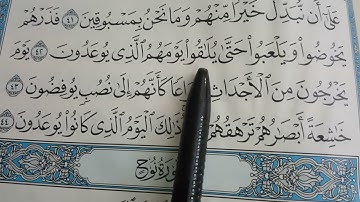 عَلَىٰٓ أَن نُّبَدِّلَ خَيْرًا مِّنْهُمْ وَمَا نَحْنُ بِمَسْبُوقِينَ ٤١ فَذَرْهُمْ
يَخُوضُوا۟ وَيَلْعَبُوا۟ حَتَّىٰ يُلَٰقُوا۟ يَوْمَهُمُ ٱلَّذِى يُوعَدُونَ ٤٢ يَوْمَ
يَخْرُجُونَ مِنَ ٱلْأَجْدَاثِ اعًا كَأَنَّهُمْ إِلَىٰ نُصُبٍ يُوفِضُونَ ٤٣
خَٰشِعَةً أَبْصَٰرُهُمْ تَرْهَقُهُمْ ذَٰلِكَ ٱلْيَوْمُ ٱلَّذِى كَانُوا۟ يُوعَدُونَ ٤٤
سُورَةُ نُوحٍ